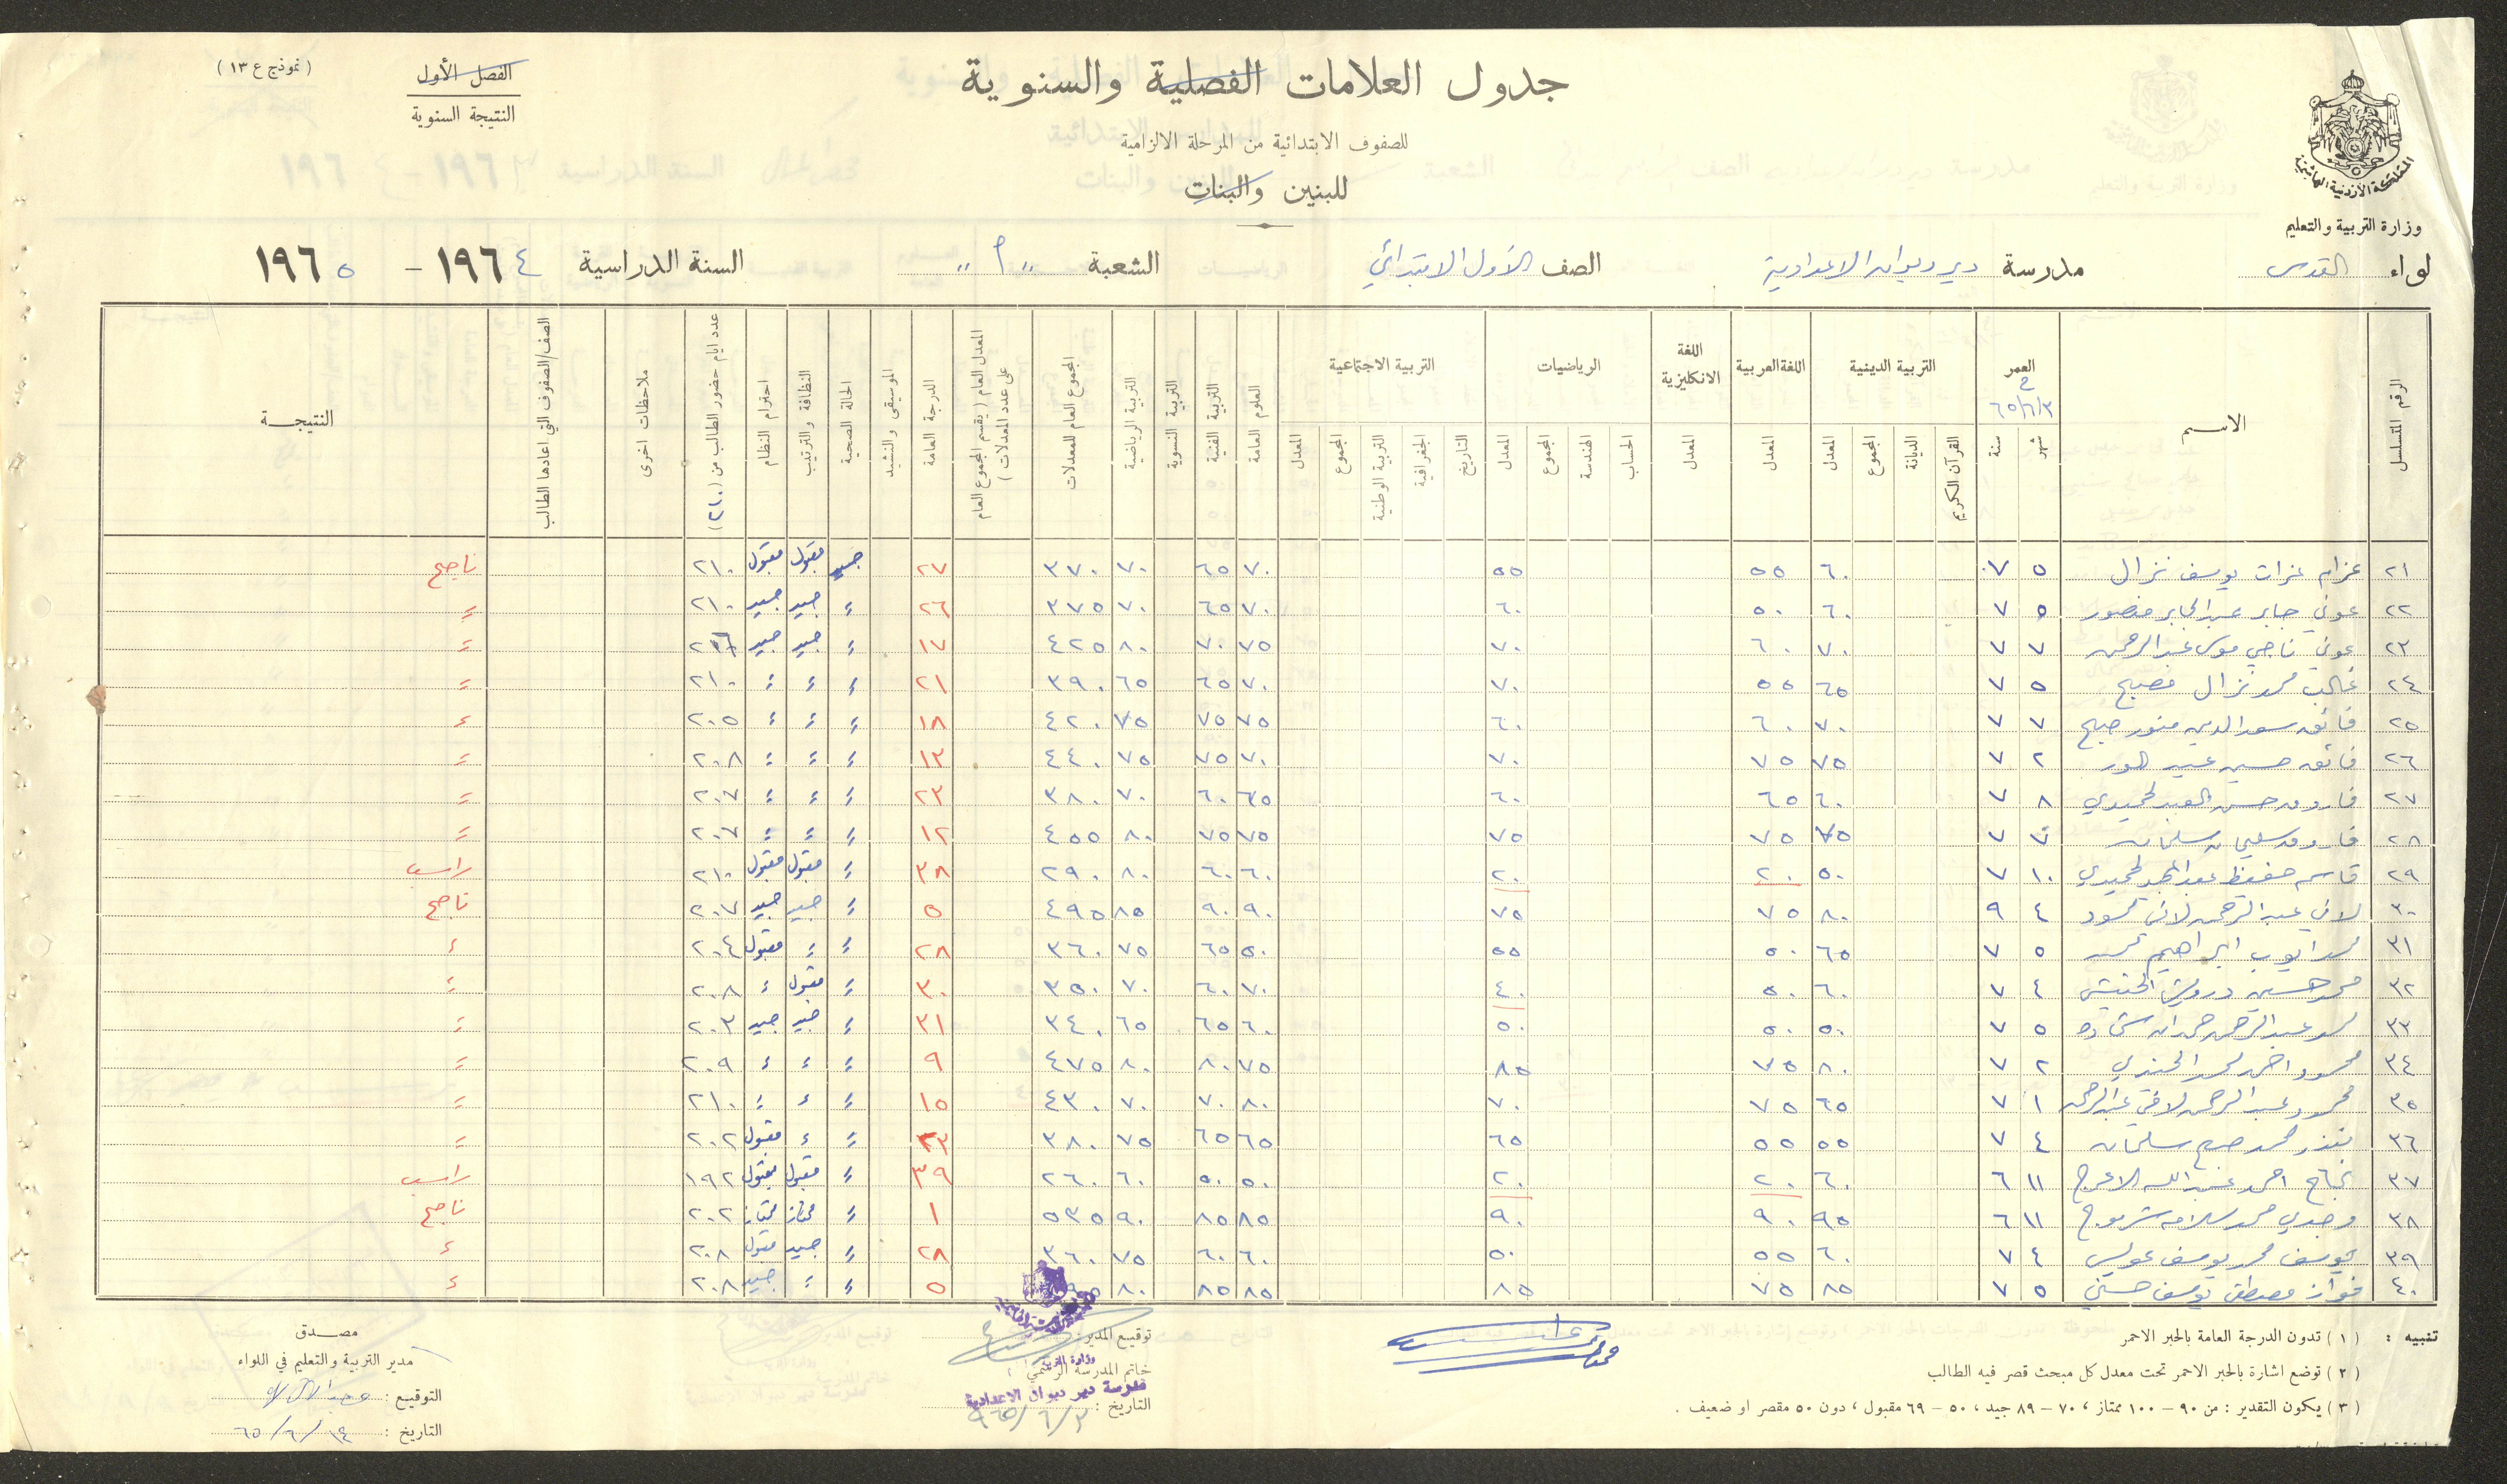 (نموذج ع ١٣)
الفصل الأول
النتيجة السنوية
جدول العلامات الفصلية والسنوية
للصفوف الابتدائية من المرحلة الالزامية
للبنين والبنات
المملكة الأردنية الهاشمية
وزارة التربية والتعليم
لواء القدس مدرسة دير ديوان الاعدادية الصف الأول الابتدائي الشعبة "أ" السنة الدراسية ١٩٦٤ - ١٩٦٥
الرقم المتسلسل الاسم العمر التربية الدينية اللغة العربية اللغة الانكليزية الرياضيات التربية الاجتماعية العلوم العامة التربية الفنية التربية النسوية التربية الرياضية المجموع العام للمعدلات المعدل العام (يقسم المجموع العام على عدد المعدلات) الدرجة العامة الموسيقى والنشيد الحالة الصحية النظافة والترتيب احترام النظام عدد ايام حضور الطالب من (٢١٠) ملاحظات اخرى الصف/الصفوف التي اعادها الطالب النتيجة
٦٥/٦/٣
شهر سنة القرآن الكريم الديانة المجموع المعدل المعدل المعدل الحساب الهندسة المجموع المعدل التاريخ الجغرافية التربية الوطنية المجموع المعدل
٢١ عزام عزات يوسف نزال ٥ ٧ ٦٠ ٥٥ ٥٥ ٧٠ ٦٥ ٧٠ ٣٧٠ ٢٧ جيد مقبول مقبول ٢١٠ ناجح
٢٢ عوني جابر عبد الجابر منصور ٥ ٧ ٦٠ ٥٠ ٦٠ ٧٠ ٦٥ ٧٠ ٣٧٥ ٢٦ " جيد جيد ٢١٠ "
٢٣ عوني ناجي موسى عبد الرحمن ٧ ٧ ٧٠ ٦٠ ٧٠ ٧٥ ٧٠ ٨٠ ٤٢٥ ١٧ " جيد جيد "
٢٤ غالب محمد نزال مصبح ٥ ٧ ٦٥ ٥٥ ٧٠ ٧٠ ٦٥ ٦٥ ٣٩٠ ٢١ " " " ٢١٠ "
٢٥ فائق سعد الدين منور صبح ٧ ٧ ٧٠ ٦٠ ٦٠ ٧٥ ٧٥ ٧٥ ٤٢٠ ١٨ " " " ٢٠٥ "
٢٦ فائق حسين عبيد ٢ ٧ ٧٥ ٧٥ ٧٠ ٧٠ ٧٥ ٧٥ ٤٤٠ ١٣ " " " ٢٠٨ "
٢٧ فاروق حسن العبد الحميدي ٨ ٧ ٦٠ ٦٥ ٦٠ ٦٥ ٦٠ ٧٠ ٣٨٠ ٢٣ " " " ٢٠٧ "
٢٨ فاروق سليمان سلمان ٧ ٧ ٧٥ ٧٥ ٧٥ ٧٥ ٧٥ ٨٠ ٤٥٥ ١٢ " " " ٢٠٧ "
٢٩ قاسم حفيظ الحميدي ١٠ ٧ ٥٠ ٢٠ ٢٠ ٦٠ ٦٠ ٨٠ ٢٩٠ ٣٨ " مقبول مقبول ٢١٠ راسب
٣٠ لافي عبد الرحمن لافي محمود ٤ ٩ ٨٠ ٧٥ ٧٥ ٩٠ ٩٠ ٨٥ ٤٩٥ ٥ " جيد جيد ٢٠٧ ناجح
٣١ محمد ايوب ابراهيم محمد ٥ ٧ ٦٥ ٥٠ ٥٥ ٥٠ ٦٥ ٧٥ ٣٦٠ ٢٨ " " مقبول ٢٠٤ "
٣٢ محمد حسين درويش ٤ ٧ ٦٠ ٥٠ ٤٠ ٧٠ ٦٠ ٧٠ ٣٥٠ ٣٠ " مقبول " ٢٠٨ "
٣٣ محمد عبد الرحمن حمدان شحاده ٥ ٧ ٥٠ ٥٠ ٥٠ ٦٠ ٦٥ ٦٥ ٣٤٠ ٣١ " جيد جيد ٢٠٣ "
٣٤ محمود احمد محمد الجندي ٢ ٧ ٨٠ ٧٥ ٨٥ ٧٥ ٨٠ ٨٠ ٤٧٥ ٩ " " " ٢٠٩ "
٣٥ محمود عبد الرحمن لافي عبد الرحمن ١ ٧ ٦٥ ٧٥ ٧٠ ٨٠ ٧٠ ٧٠ ٤٣٠ ١٥ " " " ٢١٠ "
٣٦ منذر محمد صبح سلمان ٤ ٧ ٥٥ ٥٥ ٦٥ ٦٥ ٦٥ ٧٥ ٣٨٠ ٢٣ " " مقبول ٢٠٢ "
٣٧ نجاح احمد عبد الله الاعرج ١١ ٦ ٦٠ ٢٠ ٢٠ ٥٠ ٥٠ ٦٠ ٢٦٠ ٣٩ " مقبول مقبول ١٩٢ راسب
٣٨ وجدي محمد سلامه ١١ ٦ ٩٥ ٩٠ ٩٠ ٨٥ ٨٥ ٩٠ ٥٣٥ ١ " ممتاز ممتاز ٢٠٢ ناجح
٣٩ يوسف محمد يوسف عويس ٤ ٧ ٦٠ ٥٥ ٥٠ ٦٠ ٦٠ ٧٥ ٣٦٠ ٢٨ " جيد مقبول ٢٠٨ "
٤٠ فواز مصطفى يوسف حسني ٥ ٧ ٨٥ ٧٥ ٨٥ ٨٥ ٨٥ ٨٠ ٥ " " جيد ٢٠٨ "
تنبيه : (١) تدون الدرجة العامة بالحبر الاحمر
(٢) توضع اشارة بالحبر الاحمر تحت معدل كل مبحث قصر فيه الطالب
(٣) يكون التقدير : من ٩٠ - ١٠٠ ممتاز ، ٧٠ - ٨٩ جيد ، ٥٠ - ٦٩ مقبول ، دون ٥٠ مقصر او ضعيف .
توقيع المدير :
خاتم المدرسة الرسمي :
وزارة التربية
مدرسة دير ديوان الاعدادية
التاريخ : ٩٦٥/٦/٣
مصدق
مدير التربية والتعليم في اللواء
التوقيع :
التاريخ : ٦٥/٦/١٤